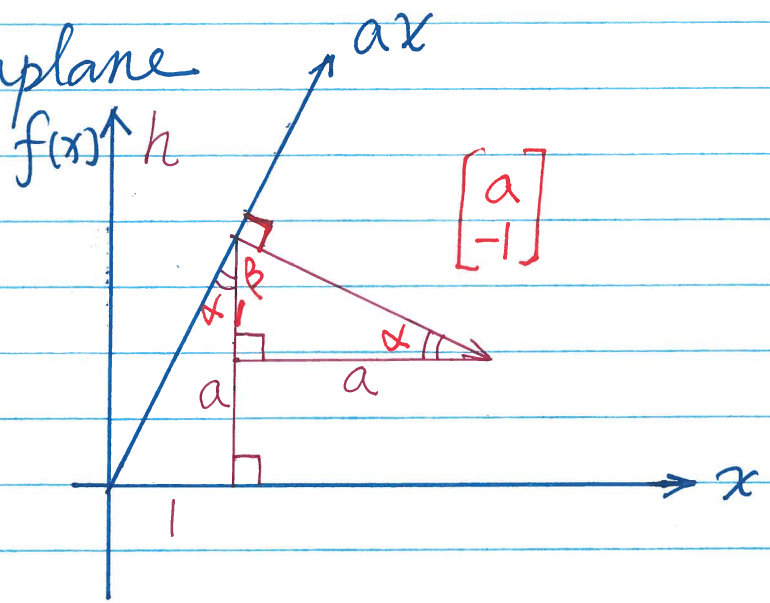 aplane
ax
f(x)
h
[ a
-1 ]
β
α
1
α
a
a
x
1